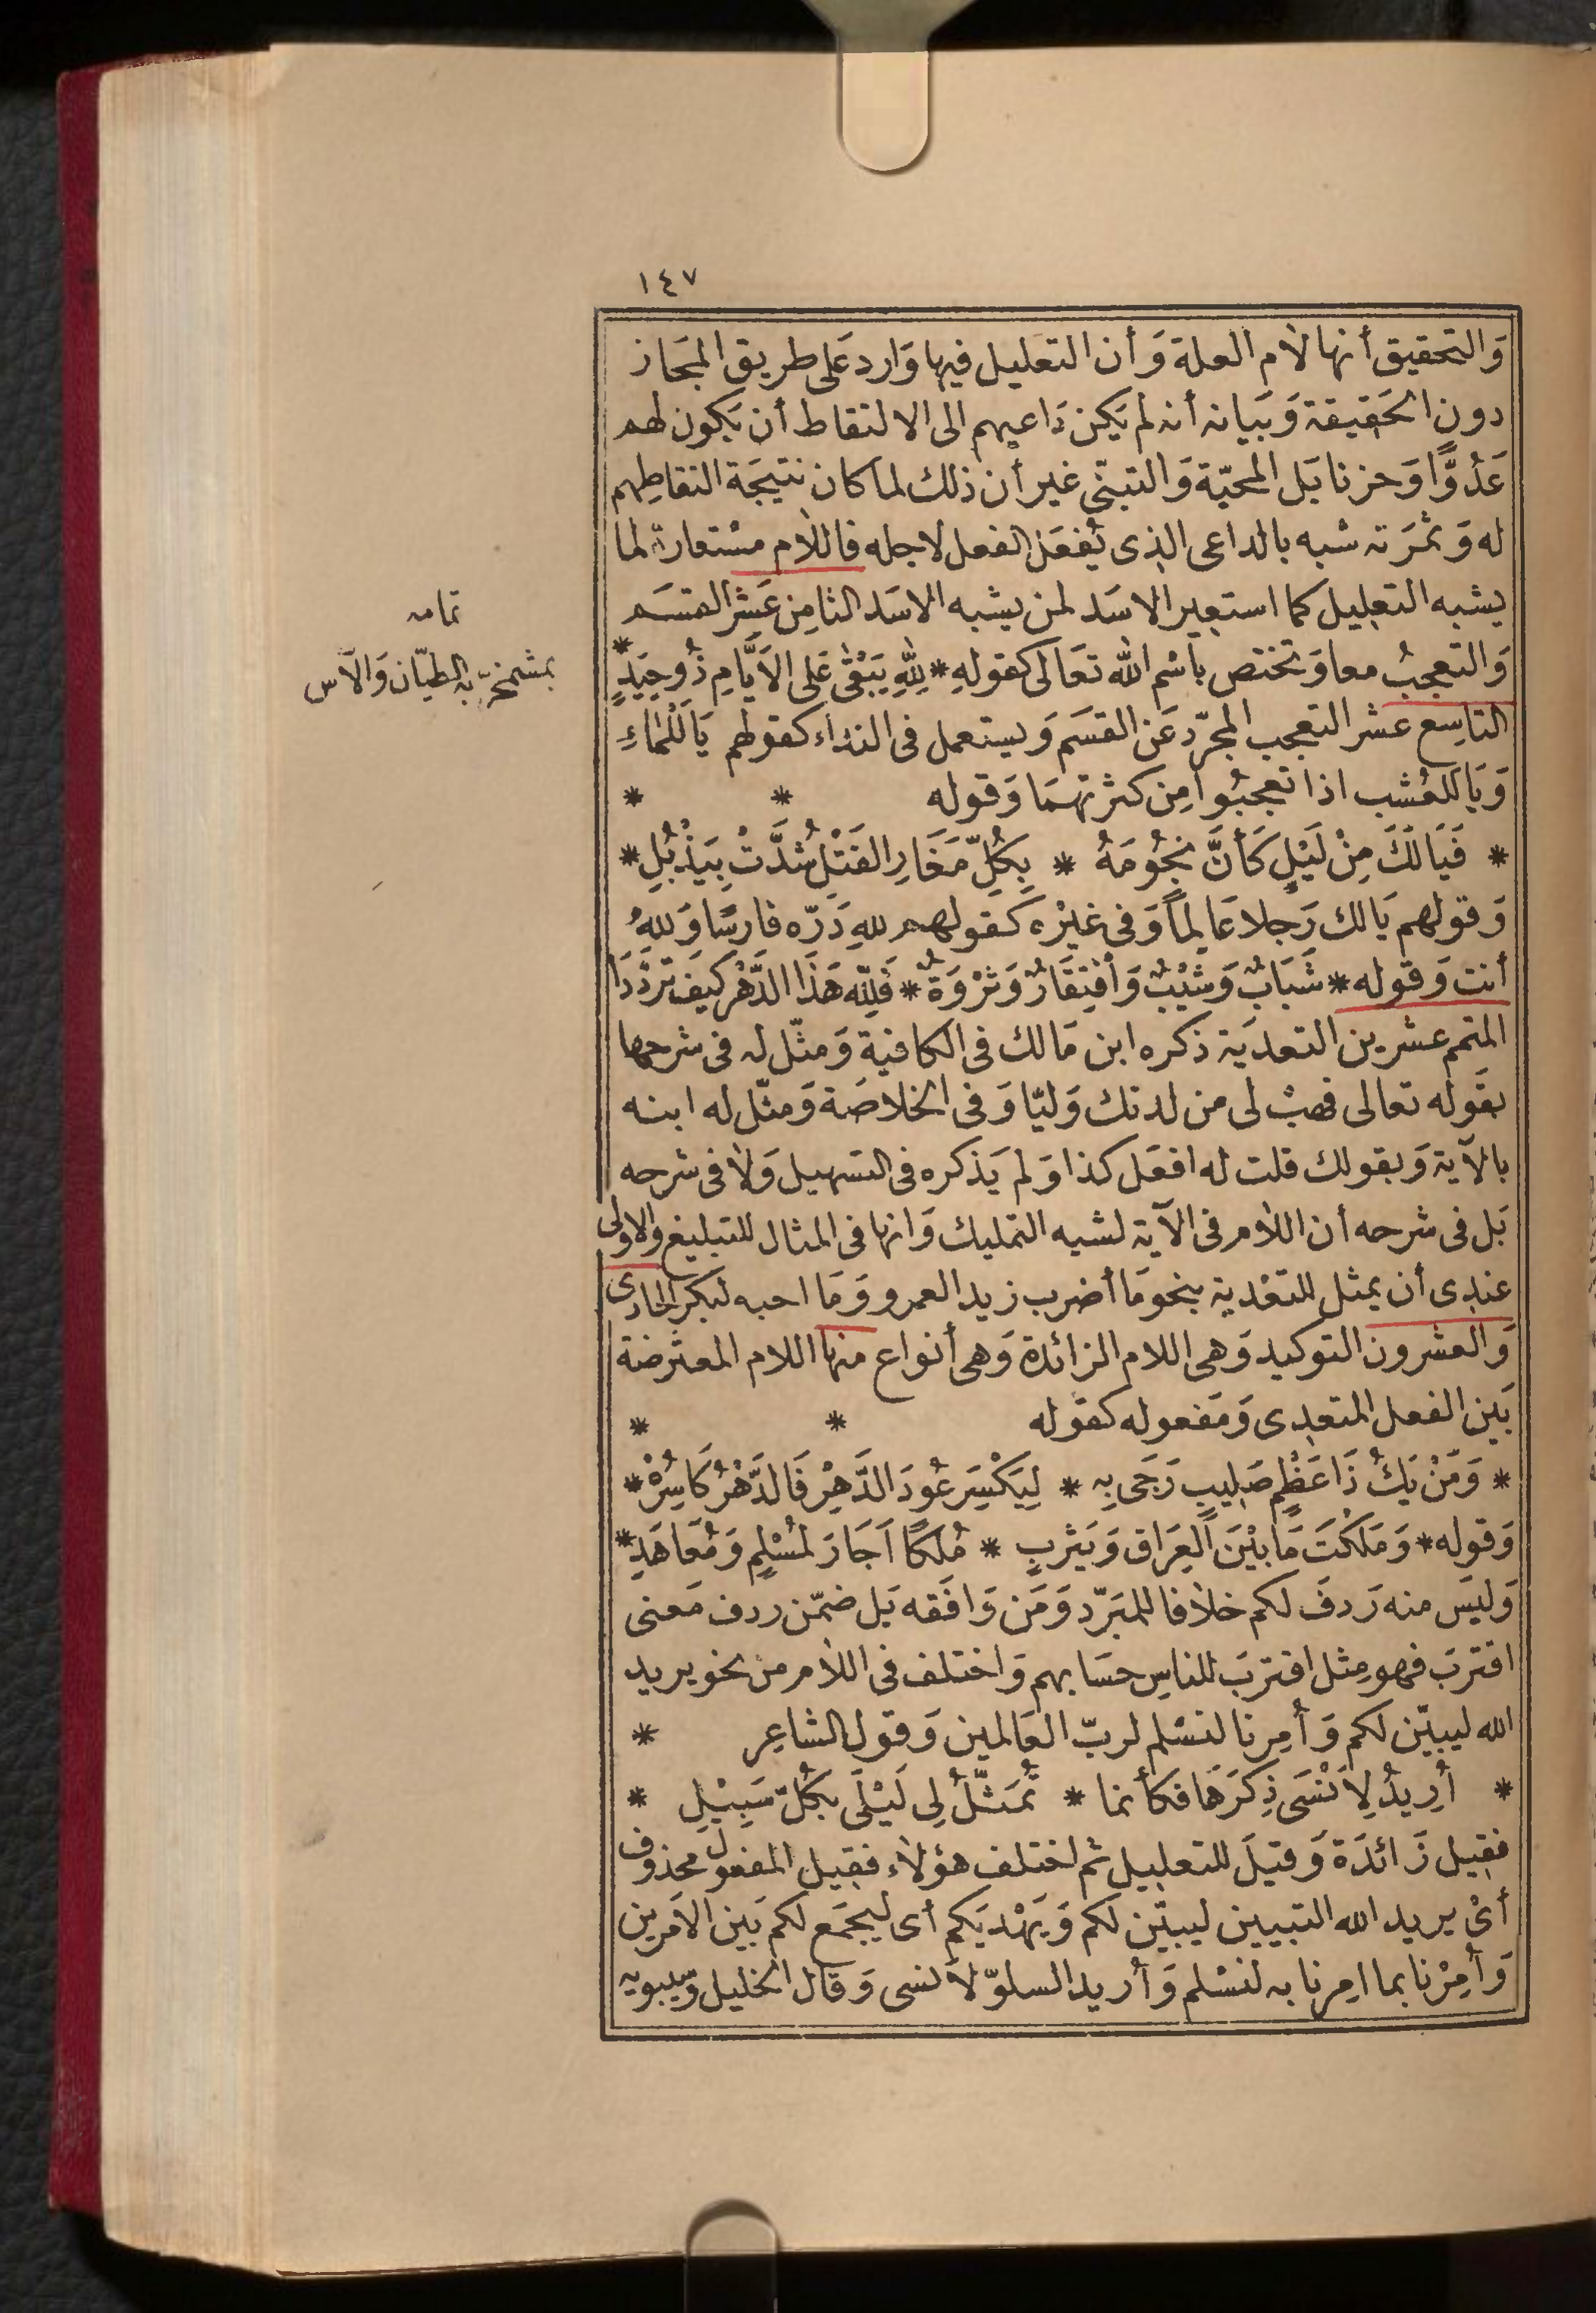 ١٤٧
وَالتحقيق أنها لام العلة وَأن التعليل فيها وَارد عَلى طريق المجَاز
دون الحَقيقة وَبَيانه أنه لم يَكن دَاعيهم الى الالتقاط أن يَكون لهم
عَدُوًّا وَحزنا بَل المحبّة وَالتبنّي غير أن ذلك لما كان نتيجَة التقاطِهم
له وَثمَرَته شبه بالداعى الذى يُفعَل الفعل لاجله فاللام مسْتعارة لما
يشبه التعليل كما استعير الاسَد لمن يشبه الاسَد الثامِن عَشر القسَم
وَالتعجبُ معا وَتختص باسْم الله تعَالى كقولهِ * لِلّٰهِ يَبْقٰى عَلى الاَيَّامِ ذُو حِيَدٍ *
تمامه
بمشمخرّ به الظيّان وَالآس
التاسِع عشر التعجب المجرّد عَن القسَم وَيستعمل فى النداء كقولهم يَا لَلْمَاءِ
وَيَا للعُشب اذا تعجبُوا مِن كثرتهمَا وَقوله * *
* فَيَالَكَ مِنْ لَيْلٍ كَأنَّ نجُومَهُ * بِكُلّ مَغَارِ الفَتْلِ شُدَّتْ بِيَذْبُلِ *
وَقولهم يَالك رَجلا عَالماً وَفى غيْره كقولهم للهِ دَرّه فارسًا وَللهِ
أنت وَقوله * شَبَابٌ وَشَيْبٌ وَافْتِقَارٌ وَثرْوَةٌ * فَلِلّه هَذَا الدَّهْرُ كيفَ تَردَّدَا
المتمم عشرين التعديَة ذكره ابن مَالك فى الكافية وَمثّل له فى شرحها
بقَوله تعالى فهبْ لى من لدنك وَليّا وَفى الخلاصَة وَمثّل له ابنه
بالآية وَبقولك قلت له افعَل كذا وَلم يَذكره فى التسهيل وَلا فى شرحه
بَل فى شرحه أن اللام فى الآية لشبه التمليك وَانها فى المثال للتبليغ والاولى
عندى أن يمثل للتعْدية بنحو مَا أضرب زيدا لعمرو وَمَا احبه لبكر الحادى
وَالعشرون التوكيد وَهى اللام الزائدة وَهى أنواع منها اللام المعترضة
بَين الفعل المتعدى وَمَفعوله كقوله * *
* وَمَنْ يَكُ ذَا عَظْمٍ صَلِيبٍ رَجَى بِهِ * لِيَكْسِرَ عُودَ الدَّهِرْ فَالدَّهْرُ كَاسِرُهْ *
وَقوله * وَمَلكْتَ مَا بيْنَ العِرَاق وَيَثربٍ * مُلكًا اَجَارَ لمُسْلِمٍ وَمُعَاهَدِ *
وَليسَ منه رَدفَ لكم خلافا للمبَرّد وَمَن وَافَقه بَل ضمّن ردف مَعنى
اقتربَ فهو مِثل اقتربَ للناسِ حسَابهم وَاختلف فى اللام من نحو يريد
الله ليبيّن لكم وَأمِرنا لنسْلم لربّ العَالمين وَقول الشاعِر *
* أرِيدُ لِاَنْسَى ذِكرَهَا فكأنما * تُمَثّلُ لِى لَيْلَى بِكُلّ سَبِيْلِ *
فقيل زَائدَة وَقيلَ للتعليل ثم اختلف هؤلاء فقيل المفعول محذوف
أىْ يريد الله التبيين ليبيّن لكم وَيَهْديَكم أى ليجمَع لكم بَين الاَمرين
وَأمِرْنا بما امِرنا به لنسْلم وَأريد السلوّ لأنسى وَقال الخليل وَسيبويه